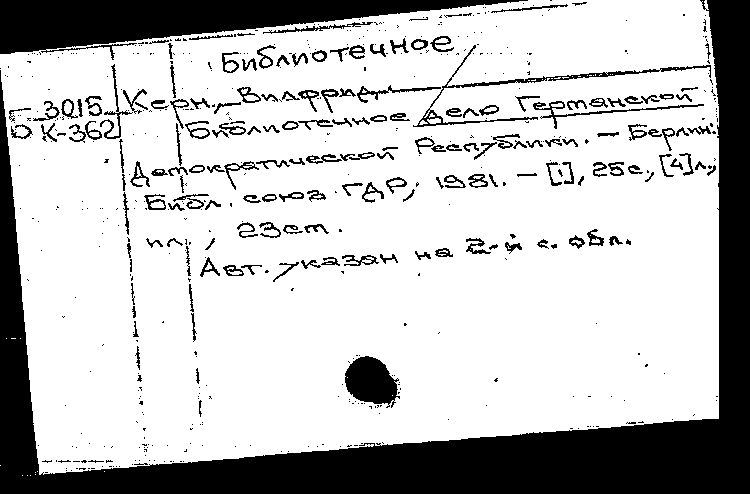 Библиотечное
Г-3015 Керн, Вилфрид
Б К-362 Библиотечное дело Германской
Демократической Республики. - Берлин:
Библ. союз ГДР, 1981. - [1], 25с., [4]л.,
ил.; 23см.
Авт. указан на 2-й с. обл.